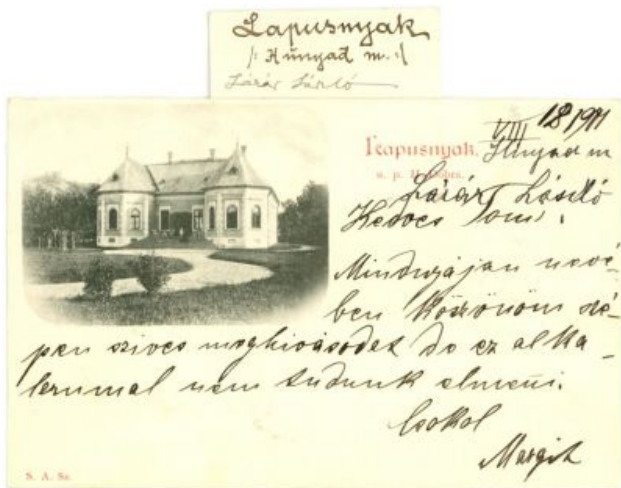 Lapusnyak
/: Hunyad m. :/
Lázár László
VIII 18 1911
Kapusnyak. Hunyad m
u. p. H. Dobra.
Lázár László
Kedves Tomi!
Mindnyájan nevé-
ben köszönöm szé-
pen szives meghivásodat de ez alka-
lommal nem tudunk elmenni.
Csokol
Margit
S. A. Sz.